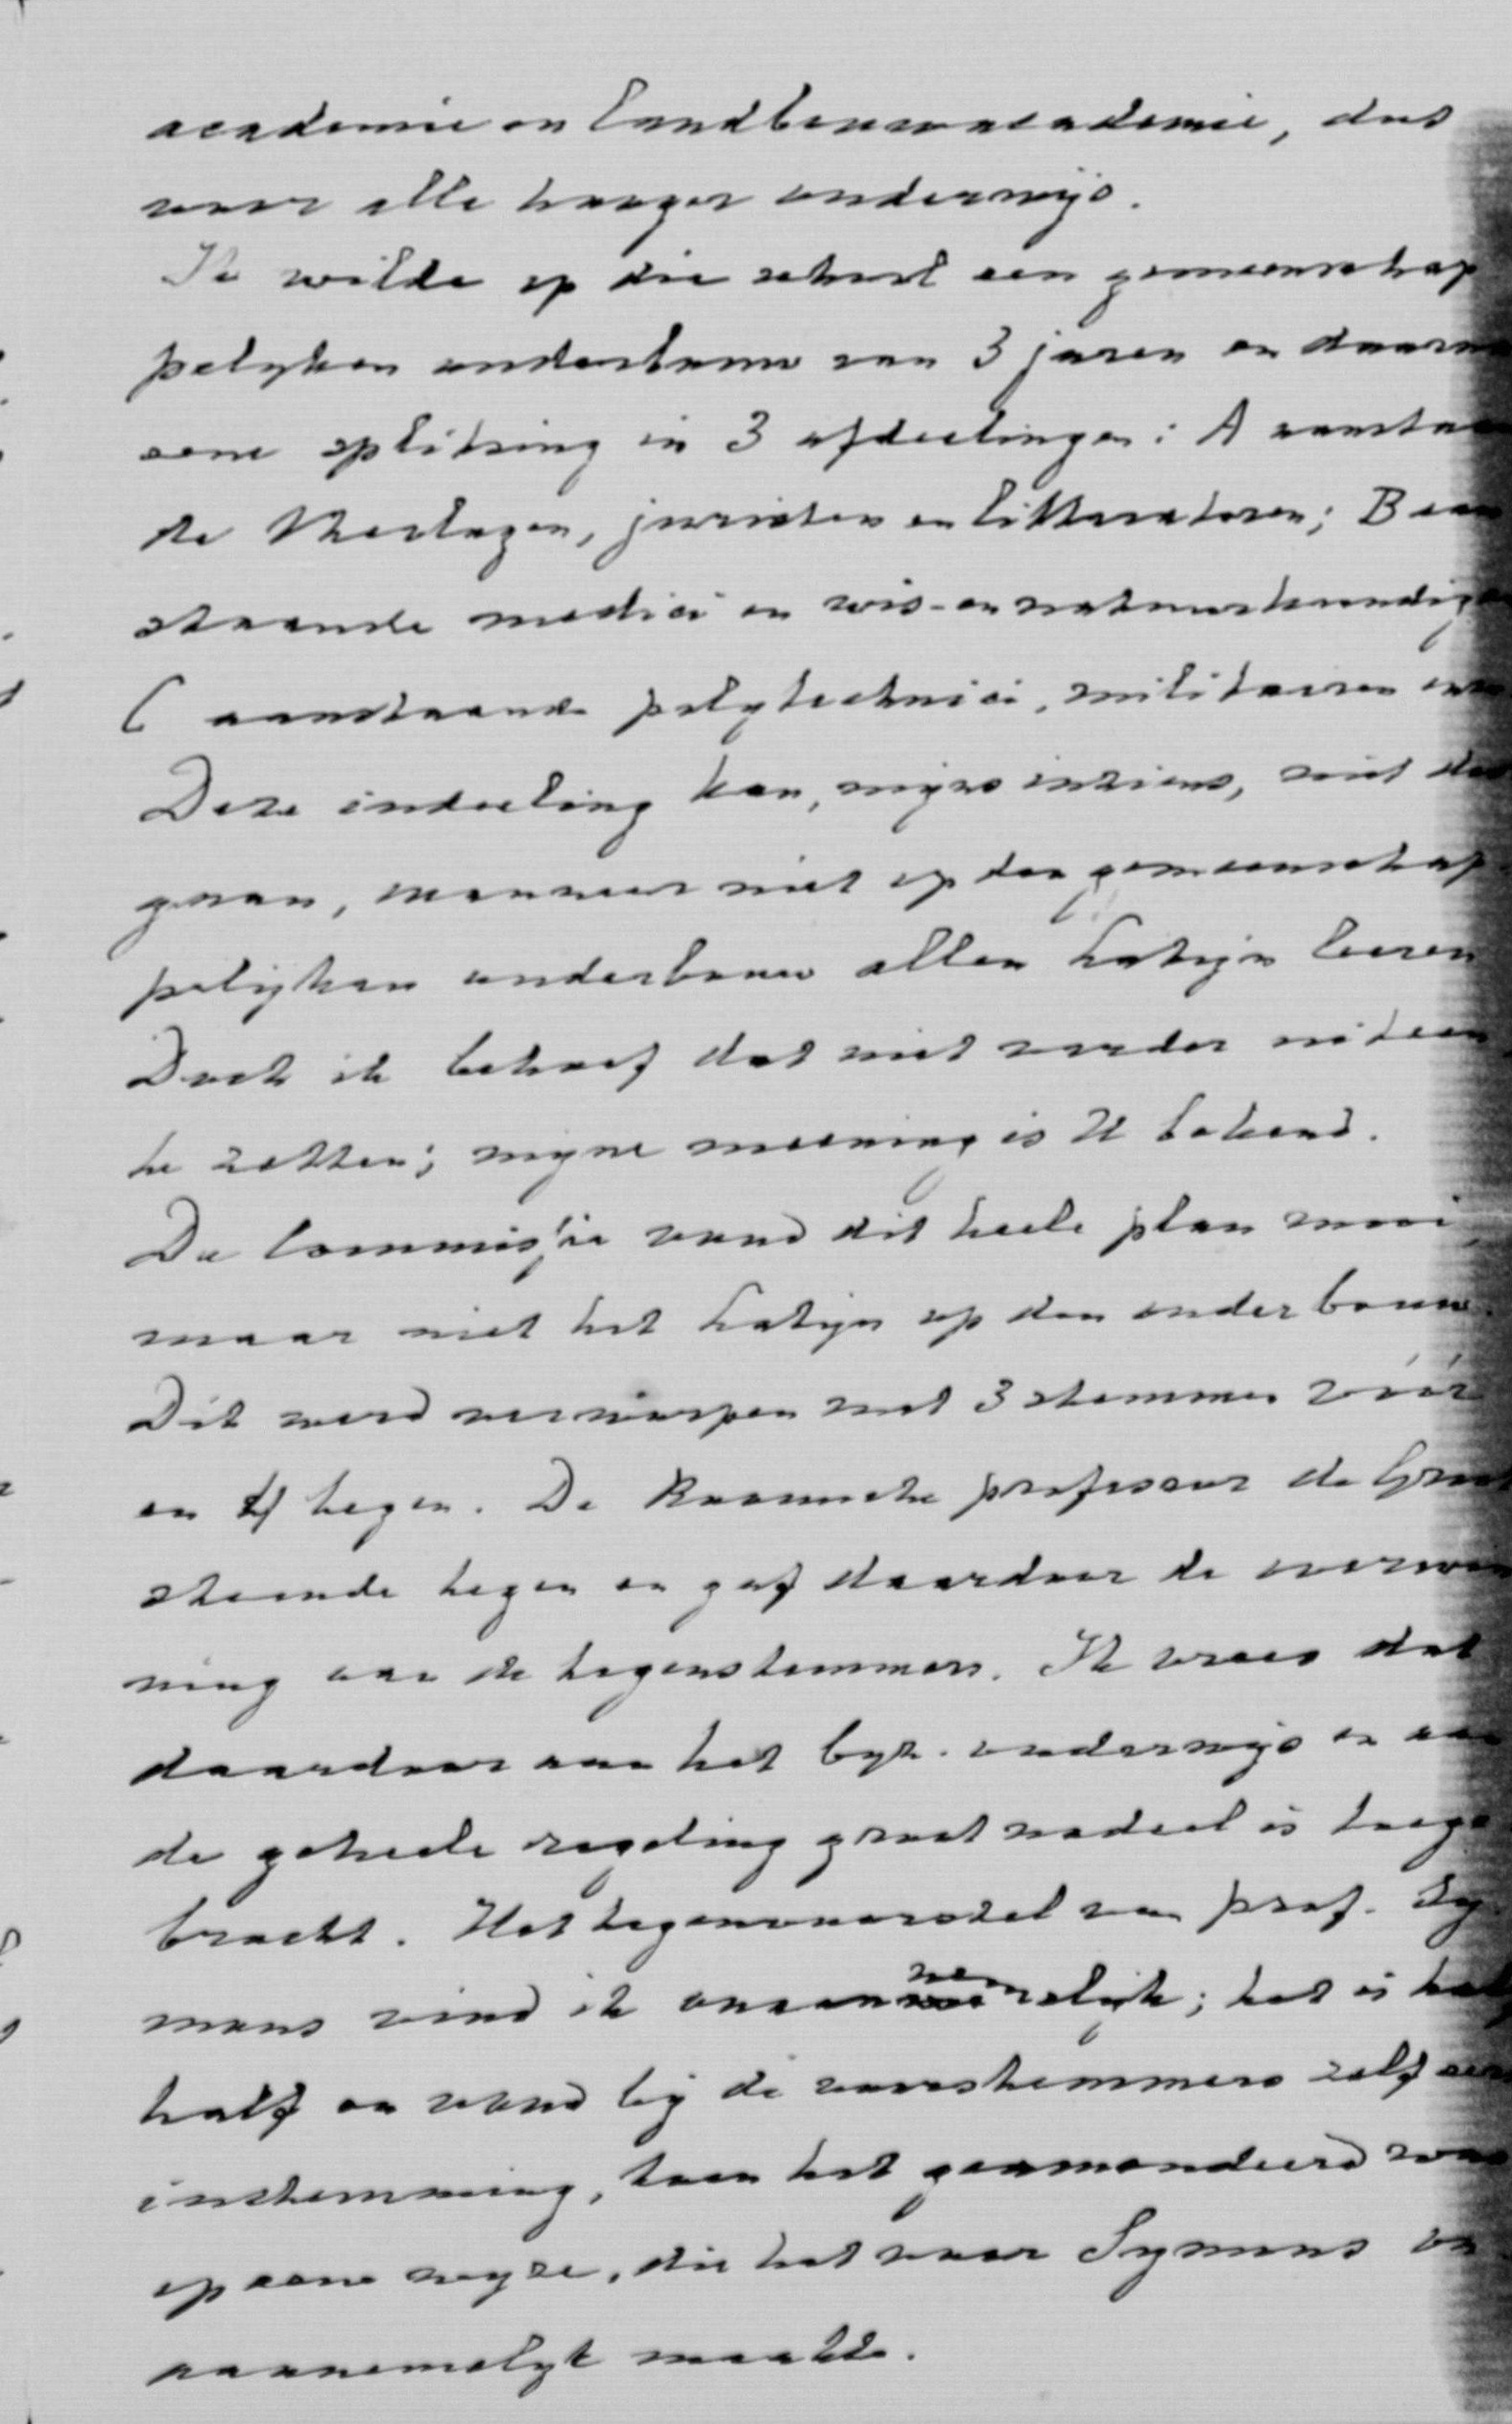 academie en landbouwacademie, dus
voor alle hooger onderwijs.
Ik wilde op die school een gemeenschap
pelyken onderbouw van 3 jaren en daarna
eene splitsing in 3 afdeelingen: A aanstaan
de theologen, juristen en litteratoren; B aan
staande medici en wis- en natuurkundigen
C aanstaande polytechnici, militairen enz
Deze indeeling kan, myns inziens, niet door
gaan, wanneer niet op den gemeenschap
pelijken onderbouw allen Latijn leeren
Doch ik behoef dat niet verder uiteen
te zetten; myne meening is U bekend.
De Commissie vond dit heele plan mooi,
maar niet het Latijn op den onderbouw.
Dit werd verworpen met 3 stemmen vóór
en 4 tegen. De Roomsche professor de Groot
stemde tegen en gaf daardoor de overwin
ning aan de tegenstemmers. Ik vrees dat
daardoor aan het byz. onderwijs en aan
de geheele regeling groot nadeel is toege
bracht. Het tegenvoorstel van prof. Sy
mons vind ik onaannemelijk; het is half
half en vond bij de voorstemmers zelf een
instemming, toen het geamendeerd was
op eene wyze, die het voor Symons on
aannemelyk maakte.